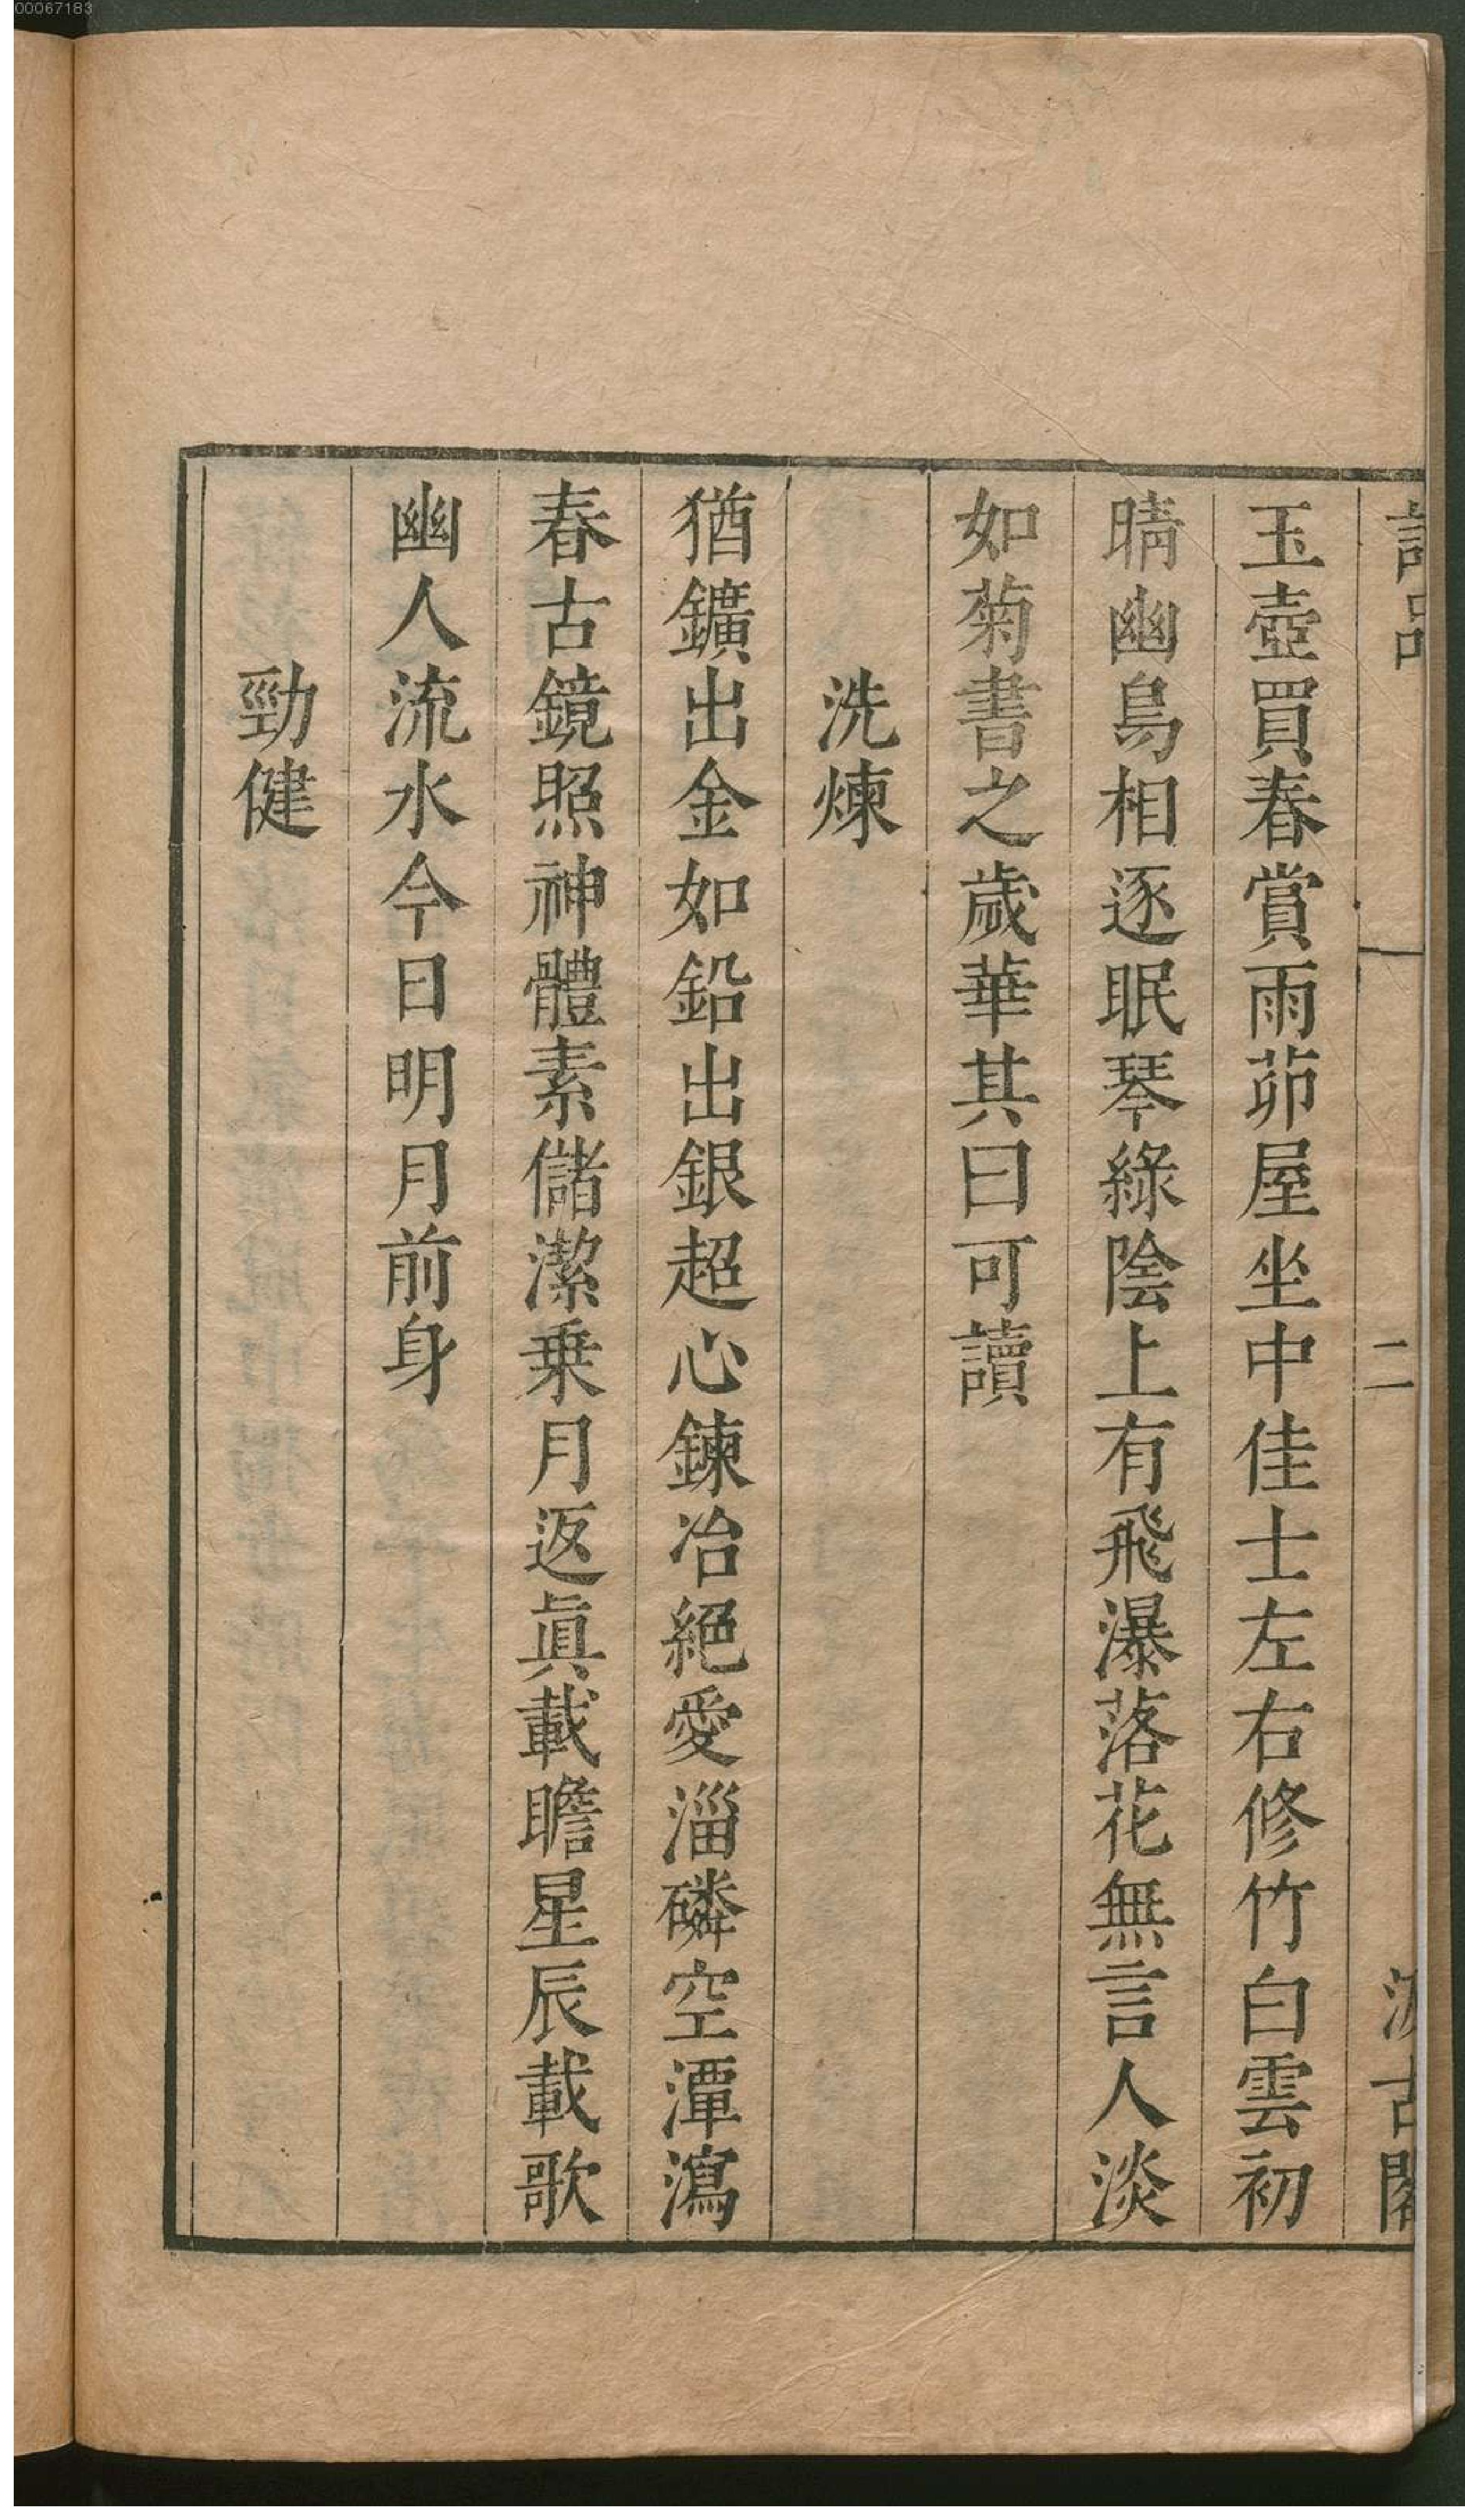 00067183
詩品 二 汲古閣
玉壺買春賞雨茆屋坐中佳士左右修竹白雲初
晴幽鳥相逐眠琴綠陰上有飛瀑落花無言人淡
如菊書之歲華其曰可讀
洗煉
猶鑛出金如鉛出銀超心鍊冶絕愛淄磷空潭瀉
春古鏡照神體素儲潔乗月返眞載瞻星辰載歌
幽人流水今日明月前身
勁健